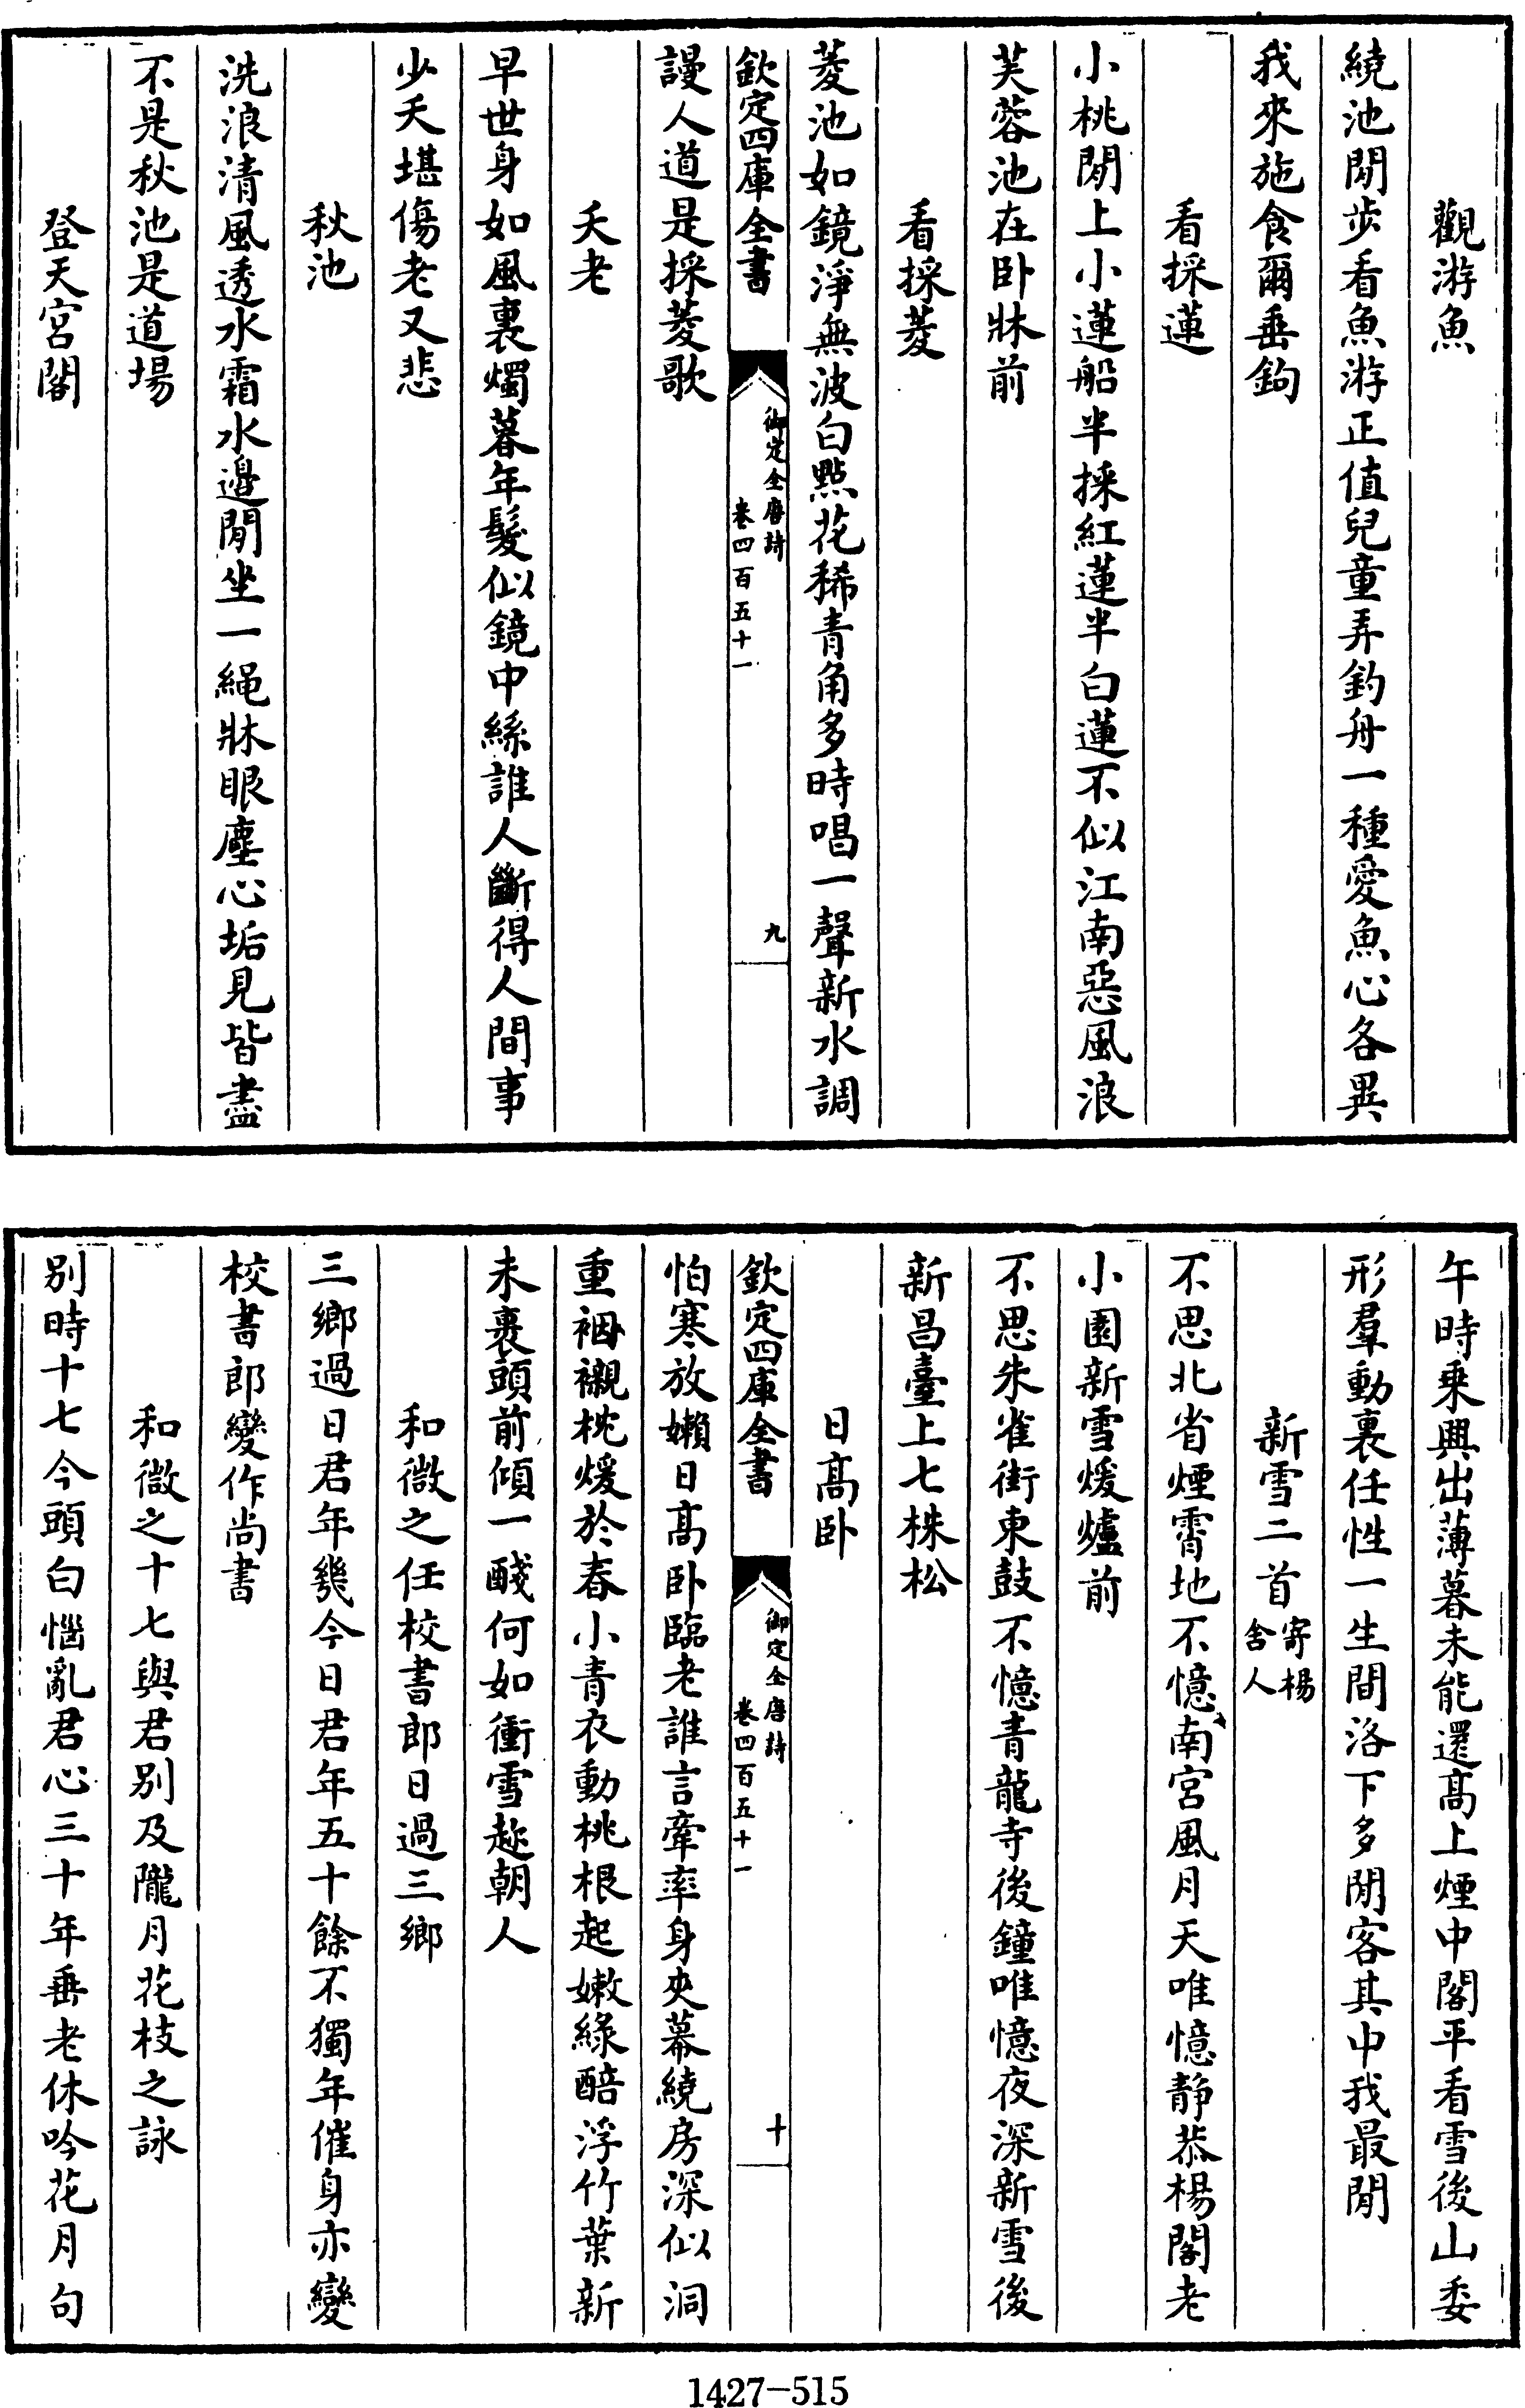 觀游魚
繞池閒步看魚游正值兒童弄釣舟一種愛魚心各異
我來施食爾垂鉤
看採蓮
小桃閒上小蓮船半採紅蓮半白蓮不似江南惡風浪
芙蓉池在卧牀前
看採菱
菱池如鏡淨無波白點花稀青角多時唱一聲新水調
欽定四庫全書
御定全唐詩
卷四百五十一
九
謾人道是採菱歌
夭老
早世身如風裏燭暮年髮似鏡中絲誰人斷得人間事
少夭堪傷老又悲
秋池
洗浪清風透水霜水邉閒坐一繩牀眼塵心垢見皆盡
不是秋池是道場
登天宮閣
午時乗興出薄暮未能還髙上煙中閣平看雪後山委
形羣動裏任性一生間洛下多閒客其中我最閒
新雪二首寄楊
舍人
不思北省煙霄地不憶南宮風月天唯憶静恭楊閣老
小園新雪煖爐前
不思朱雀街東鼓不憶青龍寺後鐘唯憶夜深新雪後
新昌臺上七株松
日髙卧
欽定四庫全書
御定全唐詩
卷四百五十一
十
怕寒放嬾日髙卧臨老誰言牽率身夾幕繞房深似洞
重裀襯枕煖於春小青衣動桃根起嫩綠醅浮竹葉新
未裹頭前傾一醆何如衝雪趂朝人
和微之任校書郎日過三鄉
三鄉過日君年幾今日君年五十餘不獨年催身亦變
校書郎變作尚書
和微之十七與君别及隴月花枝之詠
别時十七今頭白惱亂君心三十年垂老休吟花月句
1427-515